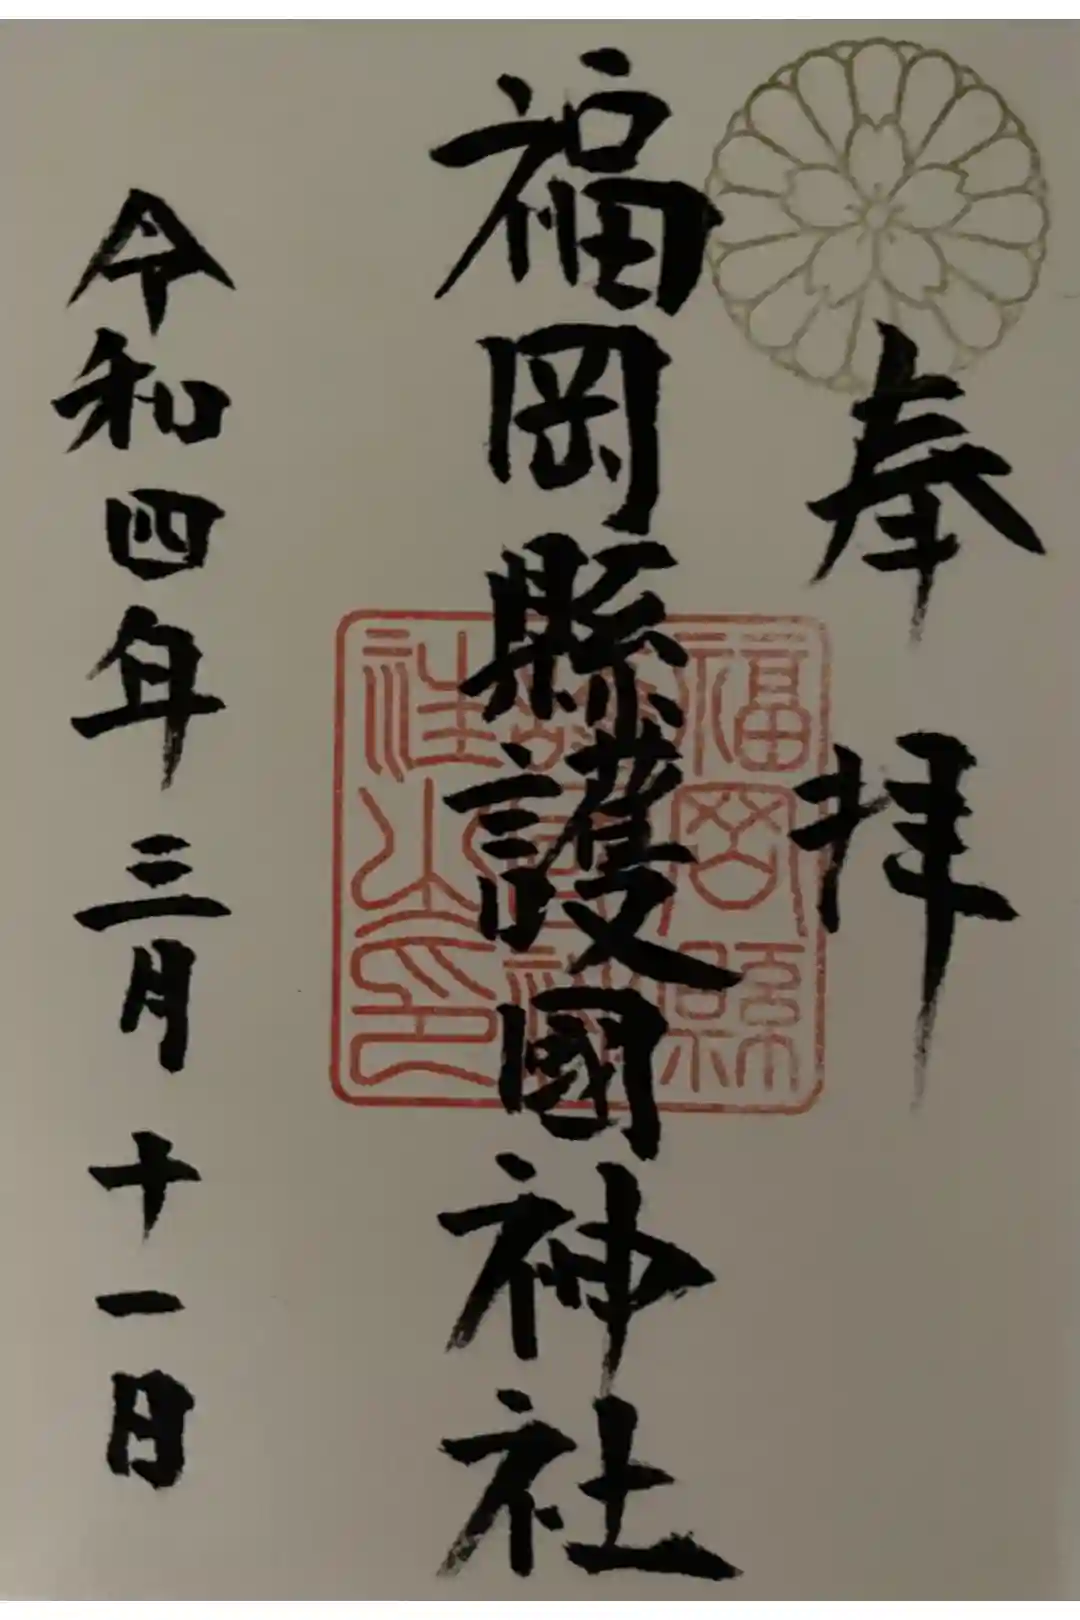 奉拝
福岡縣護國神社
福岡縣
護國神
社之印
令和四年三月十一日